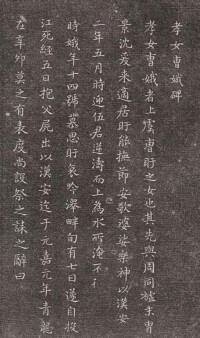 孝女曹娥碑
孝女曹娥者上虞曹盱之女也其先與周同祖末胄
景沈爰来適居盱能撫節安歌婆娑樂神以漢安
二年五月時迎伍君逆濤而上為水所淹不得
時娥年十四號慕思盱哀吟澤畔旬有七日遂自投
江死經五日抱父屍出以漢安迄于元嘉元年青龍
在辛卯莫之有表度尚設祭之誄之辭曰